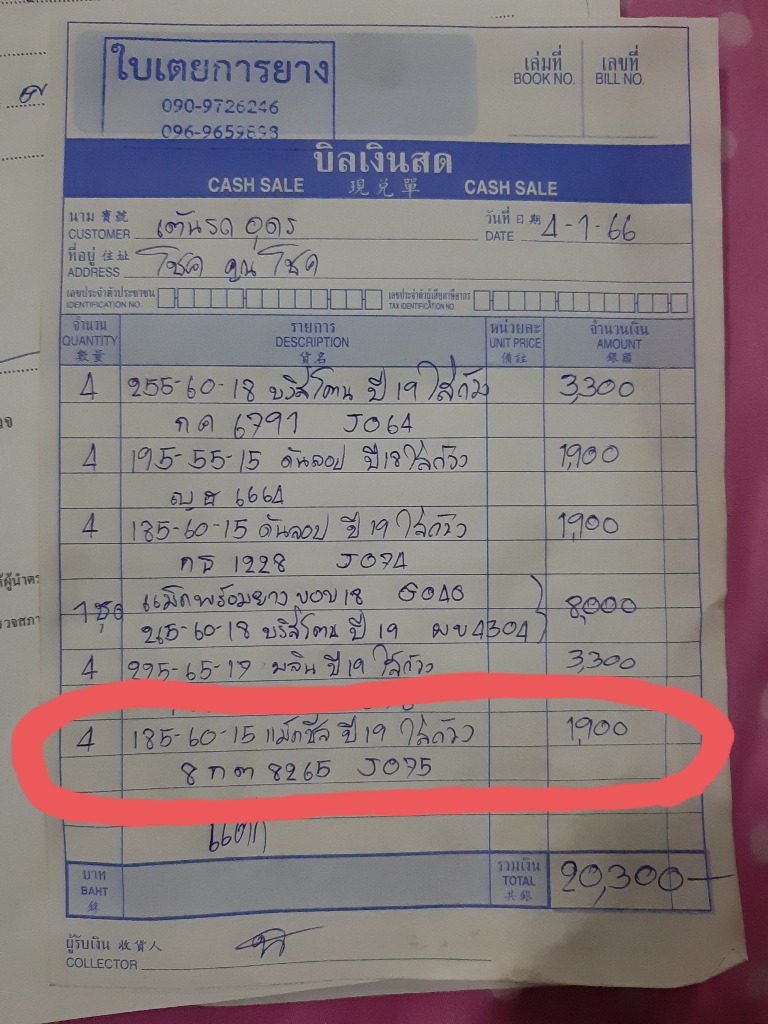 ใบเตยการยาง
090-9726246
096-9659898
เล่มที่ เลขที่
BOOK NO. BILL NO.
บิลเงินสด
CASH SALE 現兌單 CASH SALE
นาม 寶號 วันที่ 日期
CUSTOMER เต้นรถ อุดร DATE 4-1-66
ที่อยู่ 住址
ADDRESS โชค คูณ โชค
เลขประจำตัวประชาชน เลขประจำตัวผู้เสียภาษีอากร
IDENTIFICATION NO. TAX IDENTIFICATION NO.
จำนวน รายการ หน่วยละ จำนวนเงิน
QUANTITY DESCRIPTION UNIT PRICE AMOUNT
數量 貨名 備註 銀碼
4 255-60-18 บริสโตน ปี 19 ใส่ถ้วง 3,300
กค 6791 J064
4 195-55-15 ดันลอป ปี 18 ใส่ถ้วง 1,900
6664
4 185-60-15 ดันลอป ปี 19 ใส่ถ้วง 1,900
กธ 1228 J074
1 ชุด แม็กพร้อมยาง ขอบ 18 G040 8,000
-60-18 บริสโตน ปี 19 ผข 4304
4 -65-17 ปี 19 ใส่ถ้วง 3,300
4 185-60-15 แม็กซีส ปี 19 ใส่ถ้วง 1,900
8 กต 8265 J075
บาท รวมเงิน
BAHT TOTAL 20,300-
銖 共銀
ผู้รับเงิน 收貨人
COLLECTOR